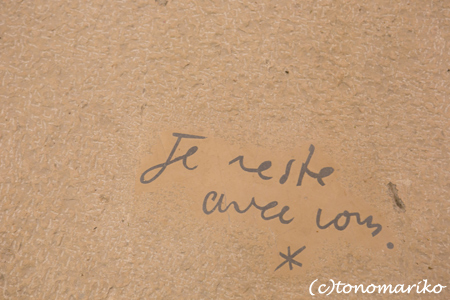 Je reste
avec vous.
*
(c)tonomariko